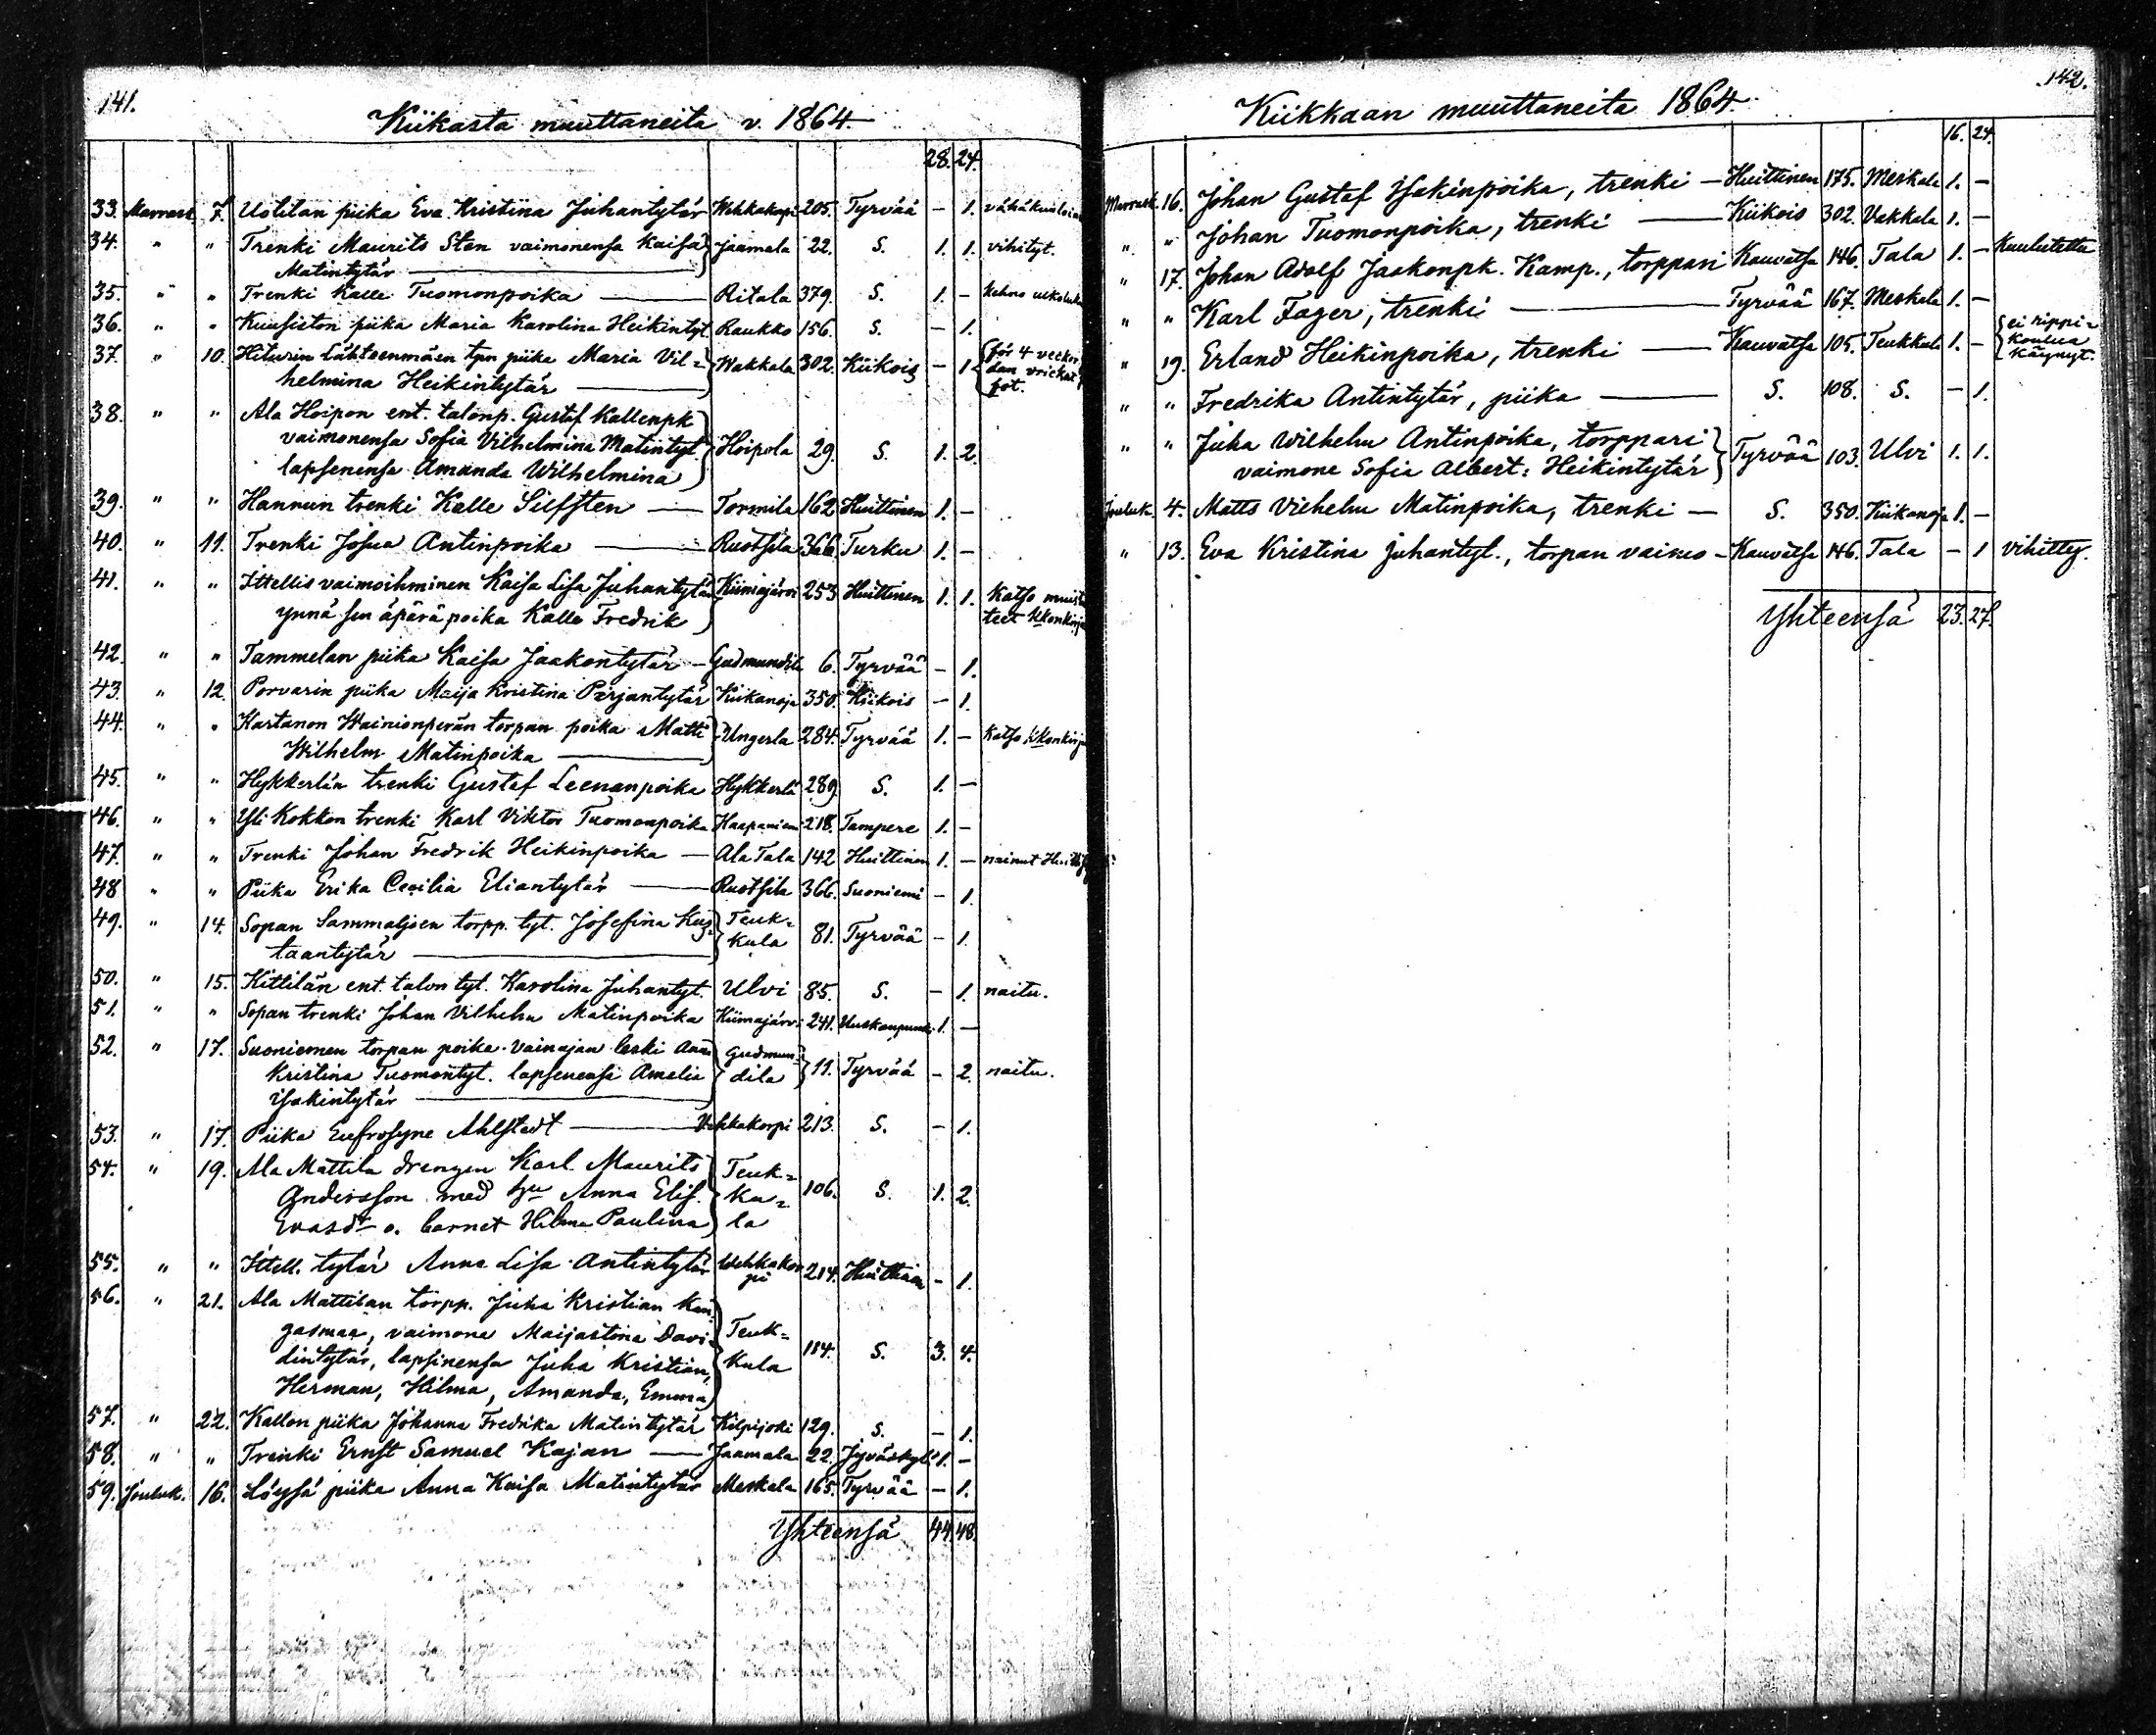 141.
Kiikasta muuttaneita v. 1864.
28. 24.
33. Marrask. 7. Uotilan piika Eva Kristiina Juhantytär Wehkakorpi 205. Tyrvää – 1.
34. " " Trenki Maurits Sten vaimonensa Kaisa Jaamala 22. S. 1. 1. vihityt.
Matintytär
35. " " Trenki Kalle Tuomonpoika Ritala 379. S. 1. –
36. " " Kuusiston piika Maria Karolina Heikintyt. Raukko 156. S. – 1.
37. " 10. Hiturin Lähteenmäen tpn piika Maria Vil= Wakkala 302. Kiikois – 1 för 4 veckor
helmina Heikintytär
38. " " Ala Hoipon ent. talonp. Gustaf Kallenpk
vaimonensa Sofia Vilhelmina Matintyt. Hoipola 29. S. 1. 2.
lapsenensa Amanda Wilhelmina
39. " " Hannun trenki Kalle Silfsten Tormila 162 Huittinen 1. –
40. " 11. Trenki Josua Antinpoika Ruotsila 366. Turku 1. –
41. " " Ittellis vaimoihminen Kaisa Lisa Juhantytär Kiimajärvi 253 Huittinen 1. 1. Katso
ynnä sen äpärä poika Kalle Fredrik
42. " " Tammelan piika Kaisa Jaakontytär – Gudmundila 6. Tyrvää – 1.
43. " 12. Porvarin piika Maija Kristina Pirjantytär Kiikanoja 350. Kiikois – 1.
44. " " Kartanon Wainionperän torpan poika Matti Ungerla 284. Tyrvää 1. – Katso
Wilhelm Matinpoika
45. " " Hykkerlän trenki Gustaf Leenanpoika Hykkerlä 289. S. 1. –
46. " " Yli Kokkon trenki Karl Viktor Tuomonpoika Haapaniemi 218. Tampere 1. –
47. " " Trenki Johan Fredrik Heikinpoika – Ala Tala 142 Huittinen 1. – nainut
48 " " Piika Erika Cecilia Eliantytär Ruotsila 366. Suoniemi – 1.
49. " 14. Sopan Sammaljoen torpp. tyt. Josefina Kus= Teuk= 81. Tyrvää – 1.
taantytär kula
50. " 15. Kittilän ent. talon tyt. Karolina Juhantyt. Ulvi 85. S. – 1. naitu.
51. " " Sopan trenki Johan Vilhelm Matinpoika Kiimajärvi 241. Uuskaupunki 1. –
52. " 17. Suoniemen torpan poika-vainajan leski Anna Gudmun= 11. Tyrvää – 2. naitu.
Kristina Tuomontyt. lapsenensa Amelia dila
Isakintytär
53. " 17. Piika Eufrosyne Ahlstedt Vehkakorpi 213. S. – 1.
54. " 19. Ala Mattila drengen Karl Maurits Teuk=
Andersson med hu Anna Elis. ku= 106. S. 1. 2.
Evasdr o. barnet Hilma Paulina la
55. " " Ittell. tytär Anna Lisa Antintytär Wehkakor 214. Huittinen – 1.
pi
56. " 21. Ala Mattilan torpp. Juha Kristian Kan
gasmaa, vaimona Maijastina Davi= Teuk=
dintytär, lapsinensa Juha Kristian, kula 114. S. 3. 4.
Herman, Hilma, Amanda, Emma
57. " 22. Kallon piika Johanna Fredrika Matintytär Kilpijoki 129. S. – 1.
58. " " Trenki Ernst Samuel Kajan Jaamala 22. Jyväskylä 1. –
59. Jouluk. 16. Löysä piika Anna Kaisa Matintytär Meskala 165. Tyrvää – 1.
Yhteensä 44. 48.
142.
Kiikkaan muuttaneita 1864.
16. 24.
Marrask. 16. Johan Gustaf Isakinpoika, trenki – Huittinen 175. Meskala 1. –
" " Johan Tuomonpoika, trenki Kiikois 302. Vakkala 1. –
" 17. Johan Adolf Jaakonpk. Kamp., torppari Kauvatsa 146. Tala 1. – Kuulutettu
" " Karl Fager, trenki Tyrvää 167. Meskala 1. –
" 19. Erland Heikinpoika, trenki Kauvatsa 105. Teukkula 1. – ei rippi=
koulua
käynyt.
" " Fredrika Antintytär, piika S. 108. S. – 1.
" " Juha Wilhelm Antinpoika, torppari Tyrvää 103. Ulvi 1. 1.
vaimone Sofia Albert: Heikintytär
Jouluk. 4. Matts Vilhelm Matinpoika, trenki – S. 350. Kiikanoja 1. –
" 13. Eva Kristina Juhantyt., torpan vaimo – Kauvatsa 146. Tala – 1 vihitty.
Yhteensä 23. 27.